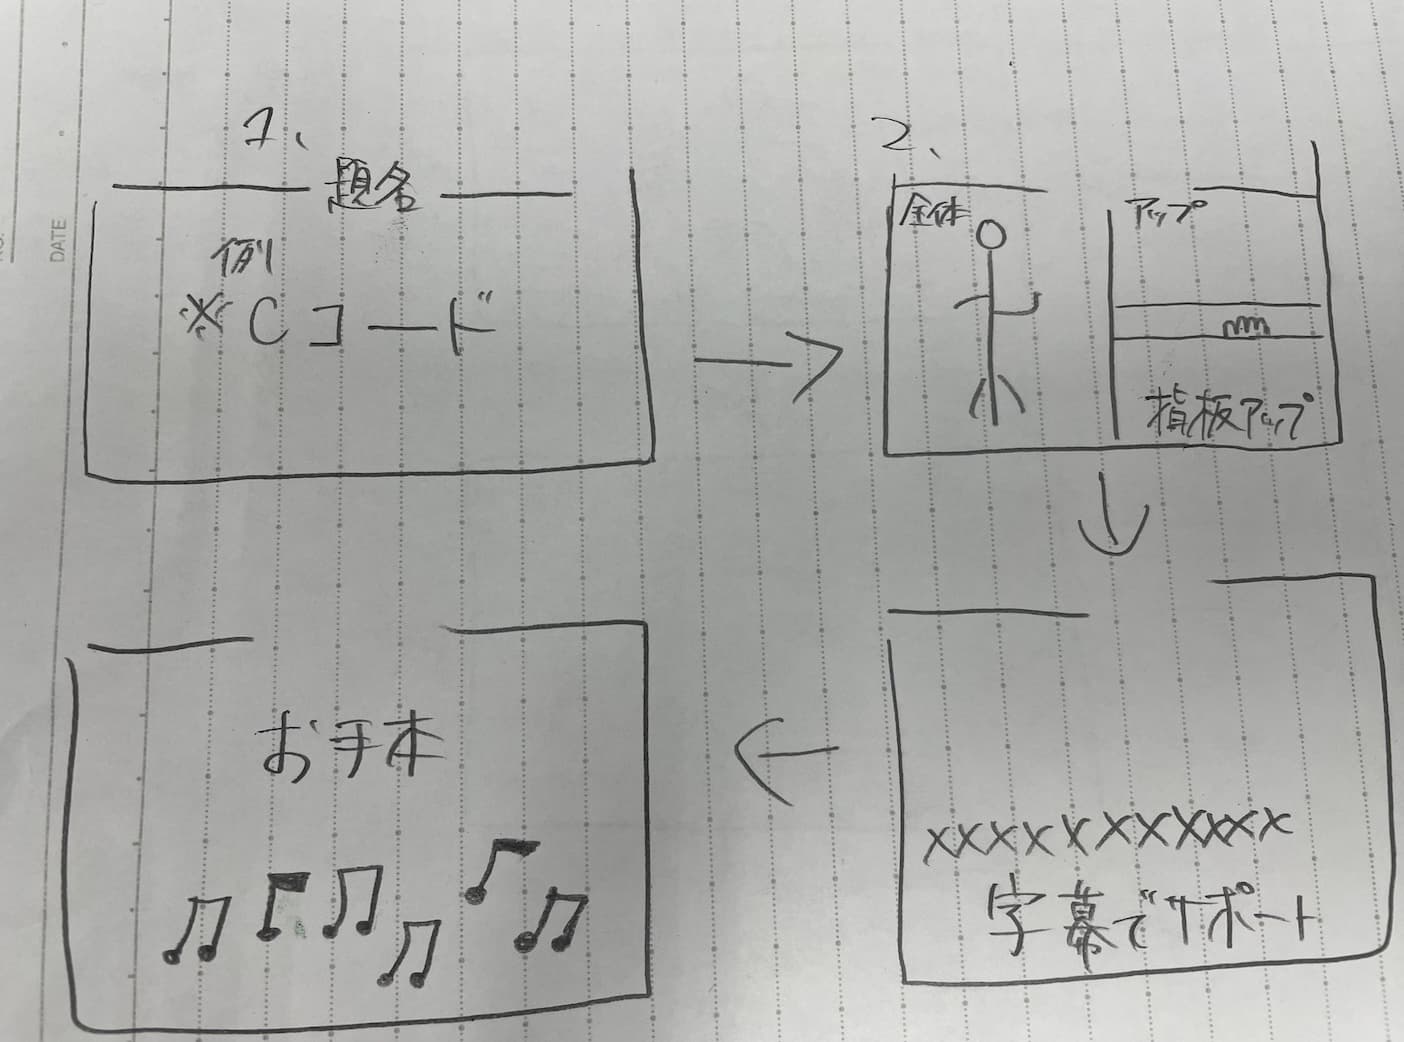 DATE
1、
題名
例
※Cコード
2、
全体
アップ
指板アップ
xxxxxxxxxxxx
字幕でサポート
お手本